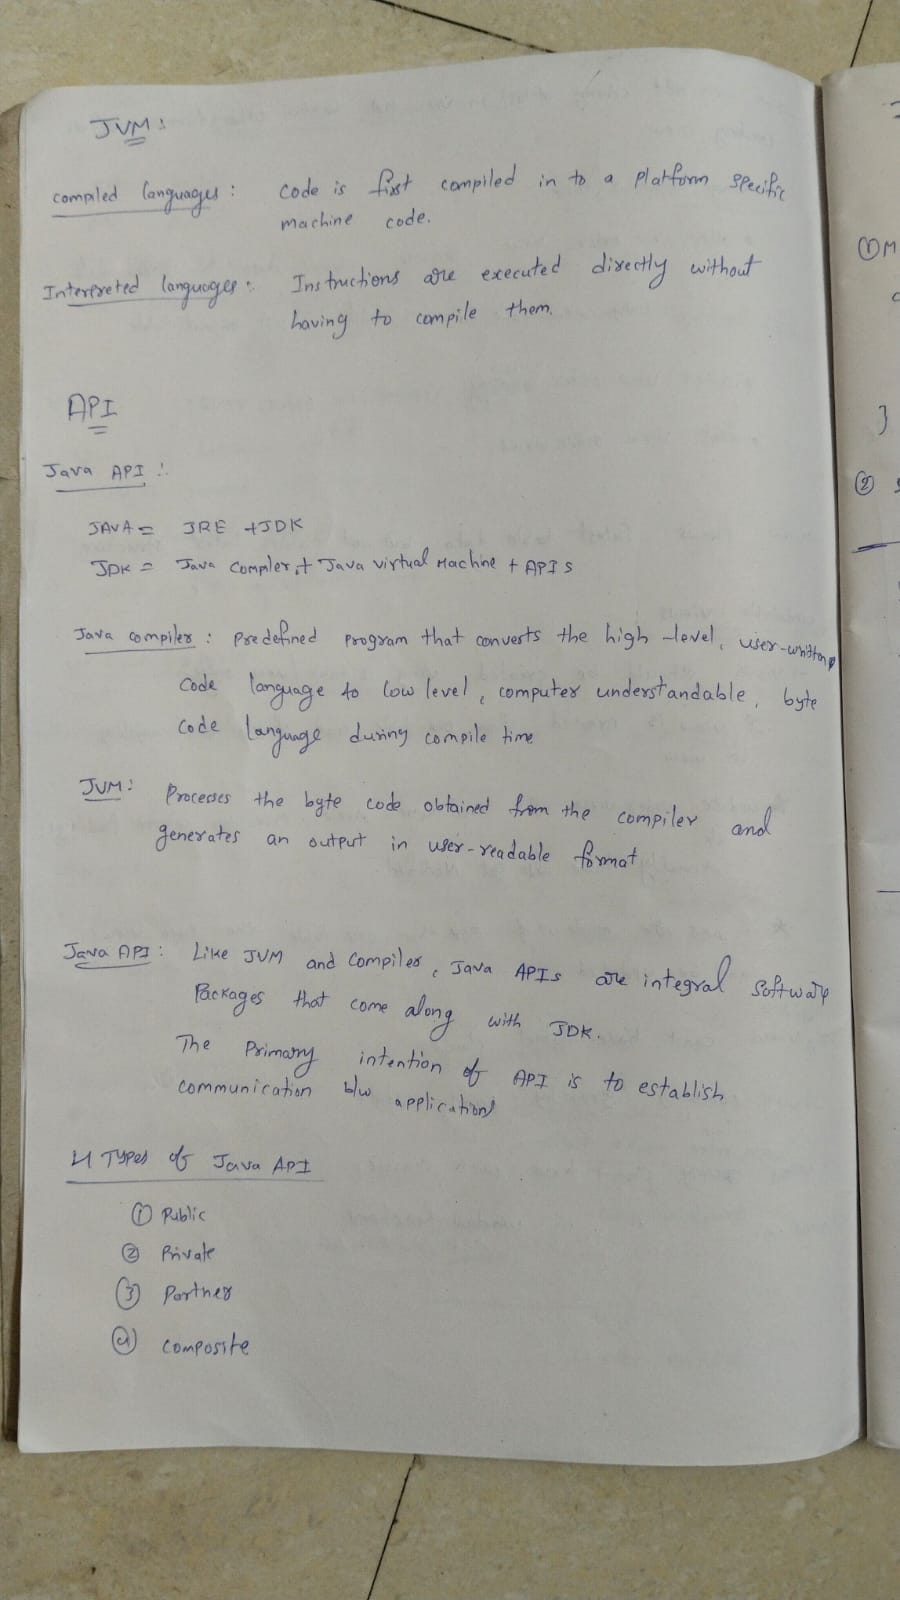 JVM:
compiled languages : code is first compiled in to a platform specific
machine code.
Interpreted languages : Instructions are executed directly without
having to compile them.
API
Java API :
JAVA = JRE + JDK
JDK = Java Compiler + Java virtual Machine + APIs
Java compiler : predefined program that converts the high-level, user-written
code language to low level, computer understandable, byte
code language during compile time
JVM: Processes the byte code obtained from the compiler and
generates an output in user-readable format
Java API : Like JVM and Compiler, Java APIs are integral software
Packages that come along with JDK.
The Primary intention of API is to establish
communication b/w applications
4 Types of Java API
① Public
② Private
③ Partner
④ composite
① M
}
②